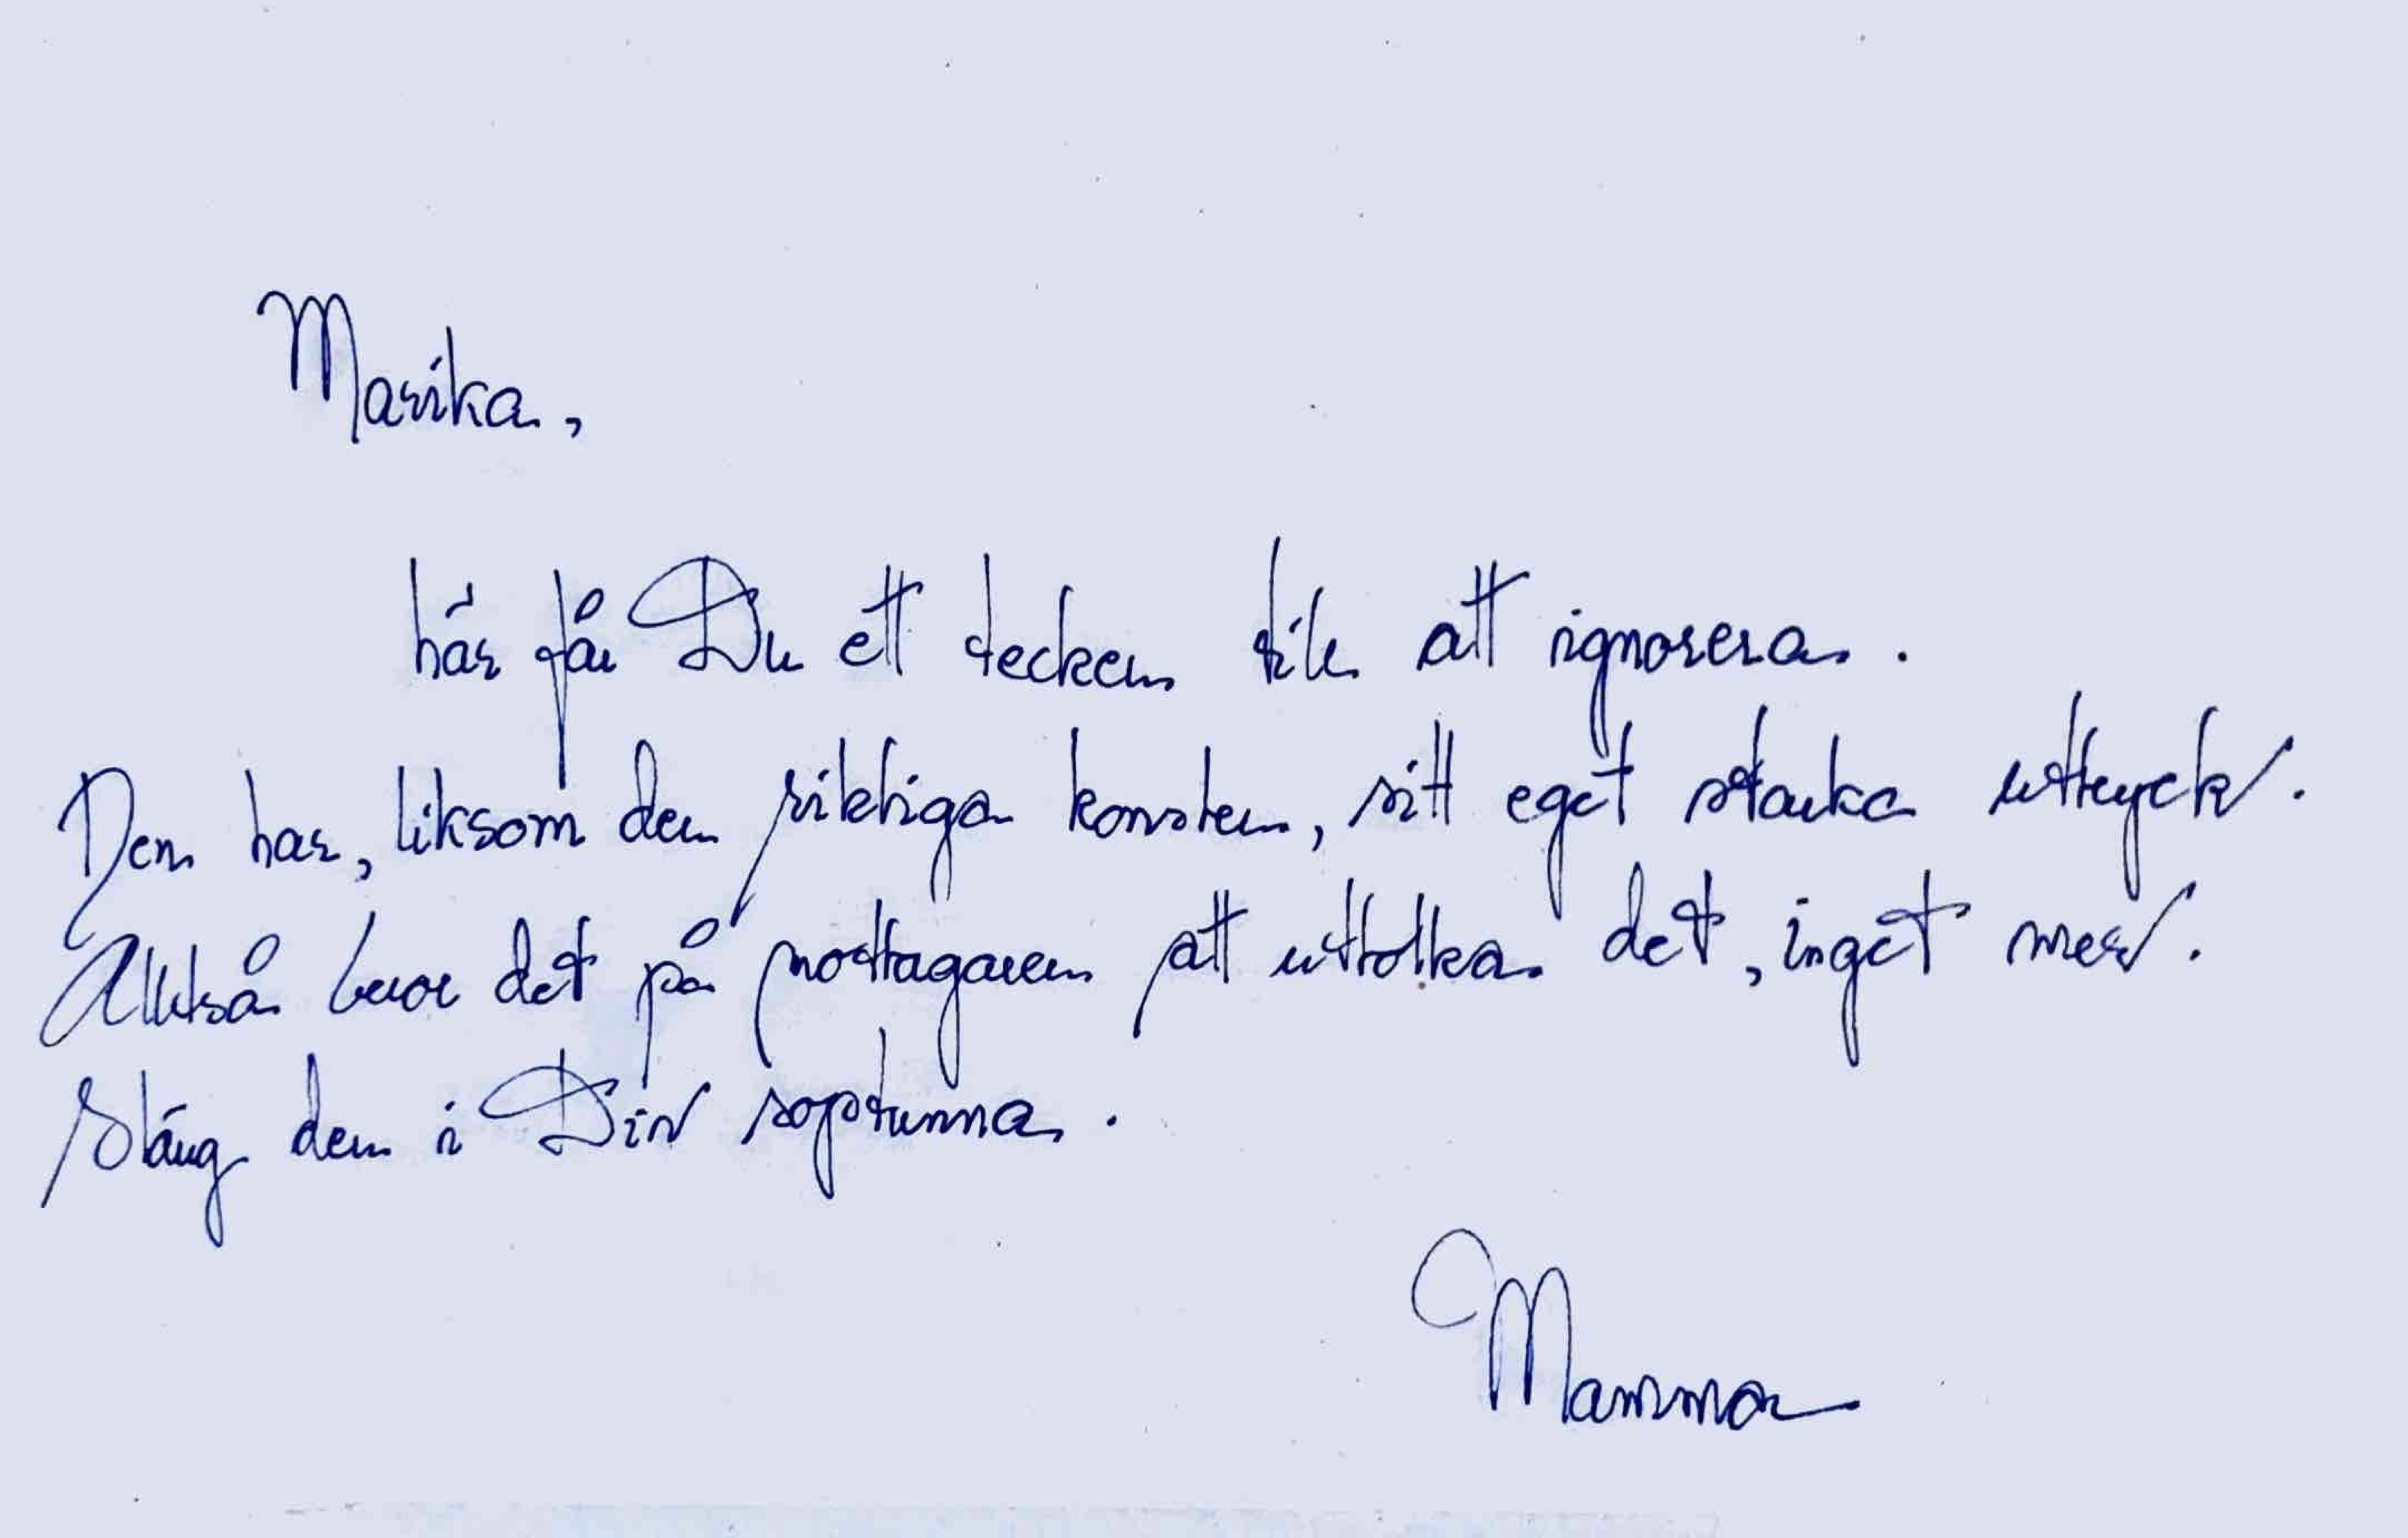 Marika,
här får Du ett tecken till att ignorera.
Den har, liksom den riktiga konsten, sitt eget starka uttryck.
Alltså beror det på mottagaren att uttolka det, inget mer.
Släng den i Din soptunna.
Mamma